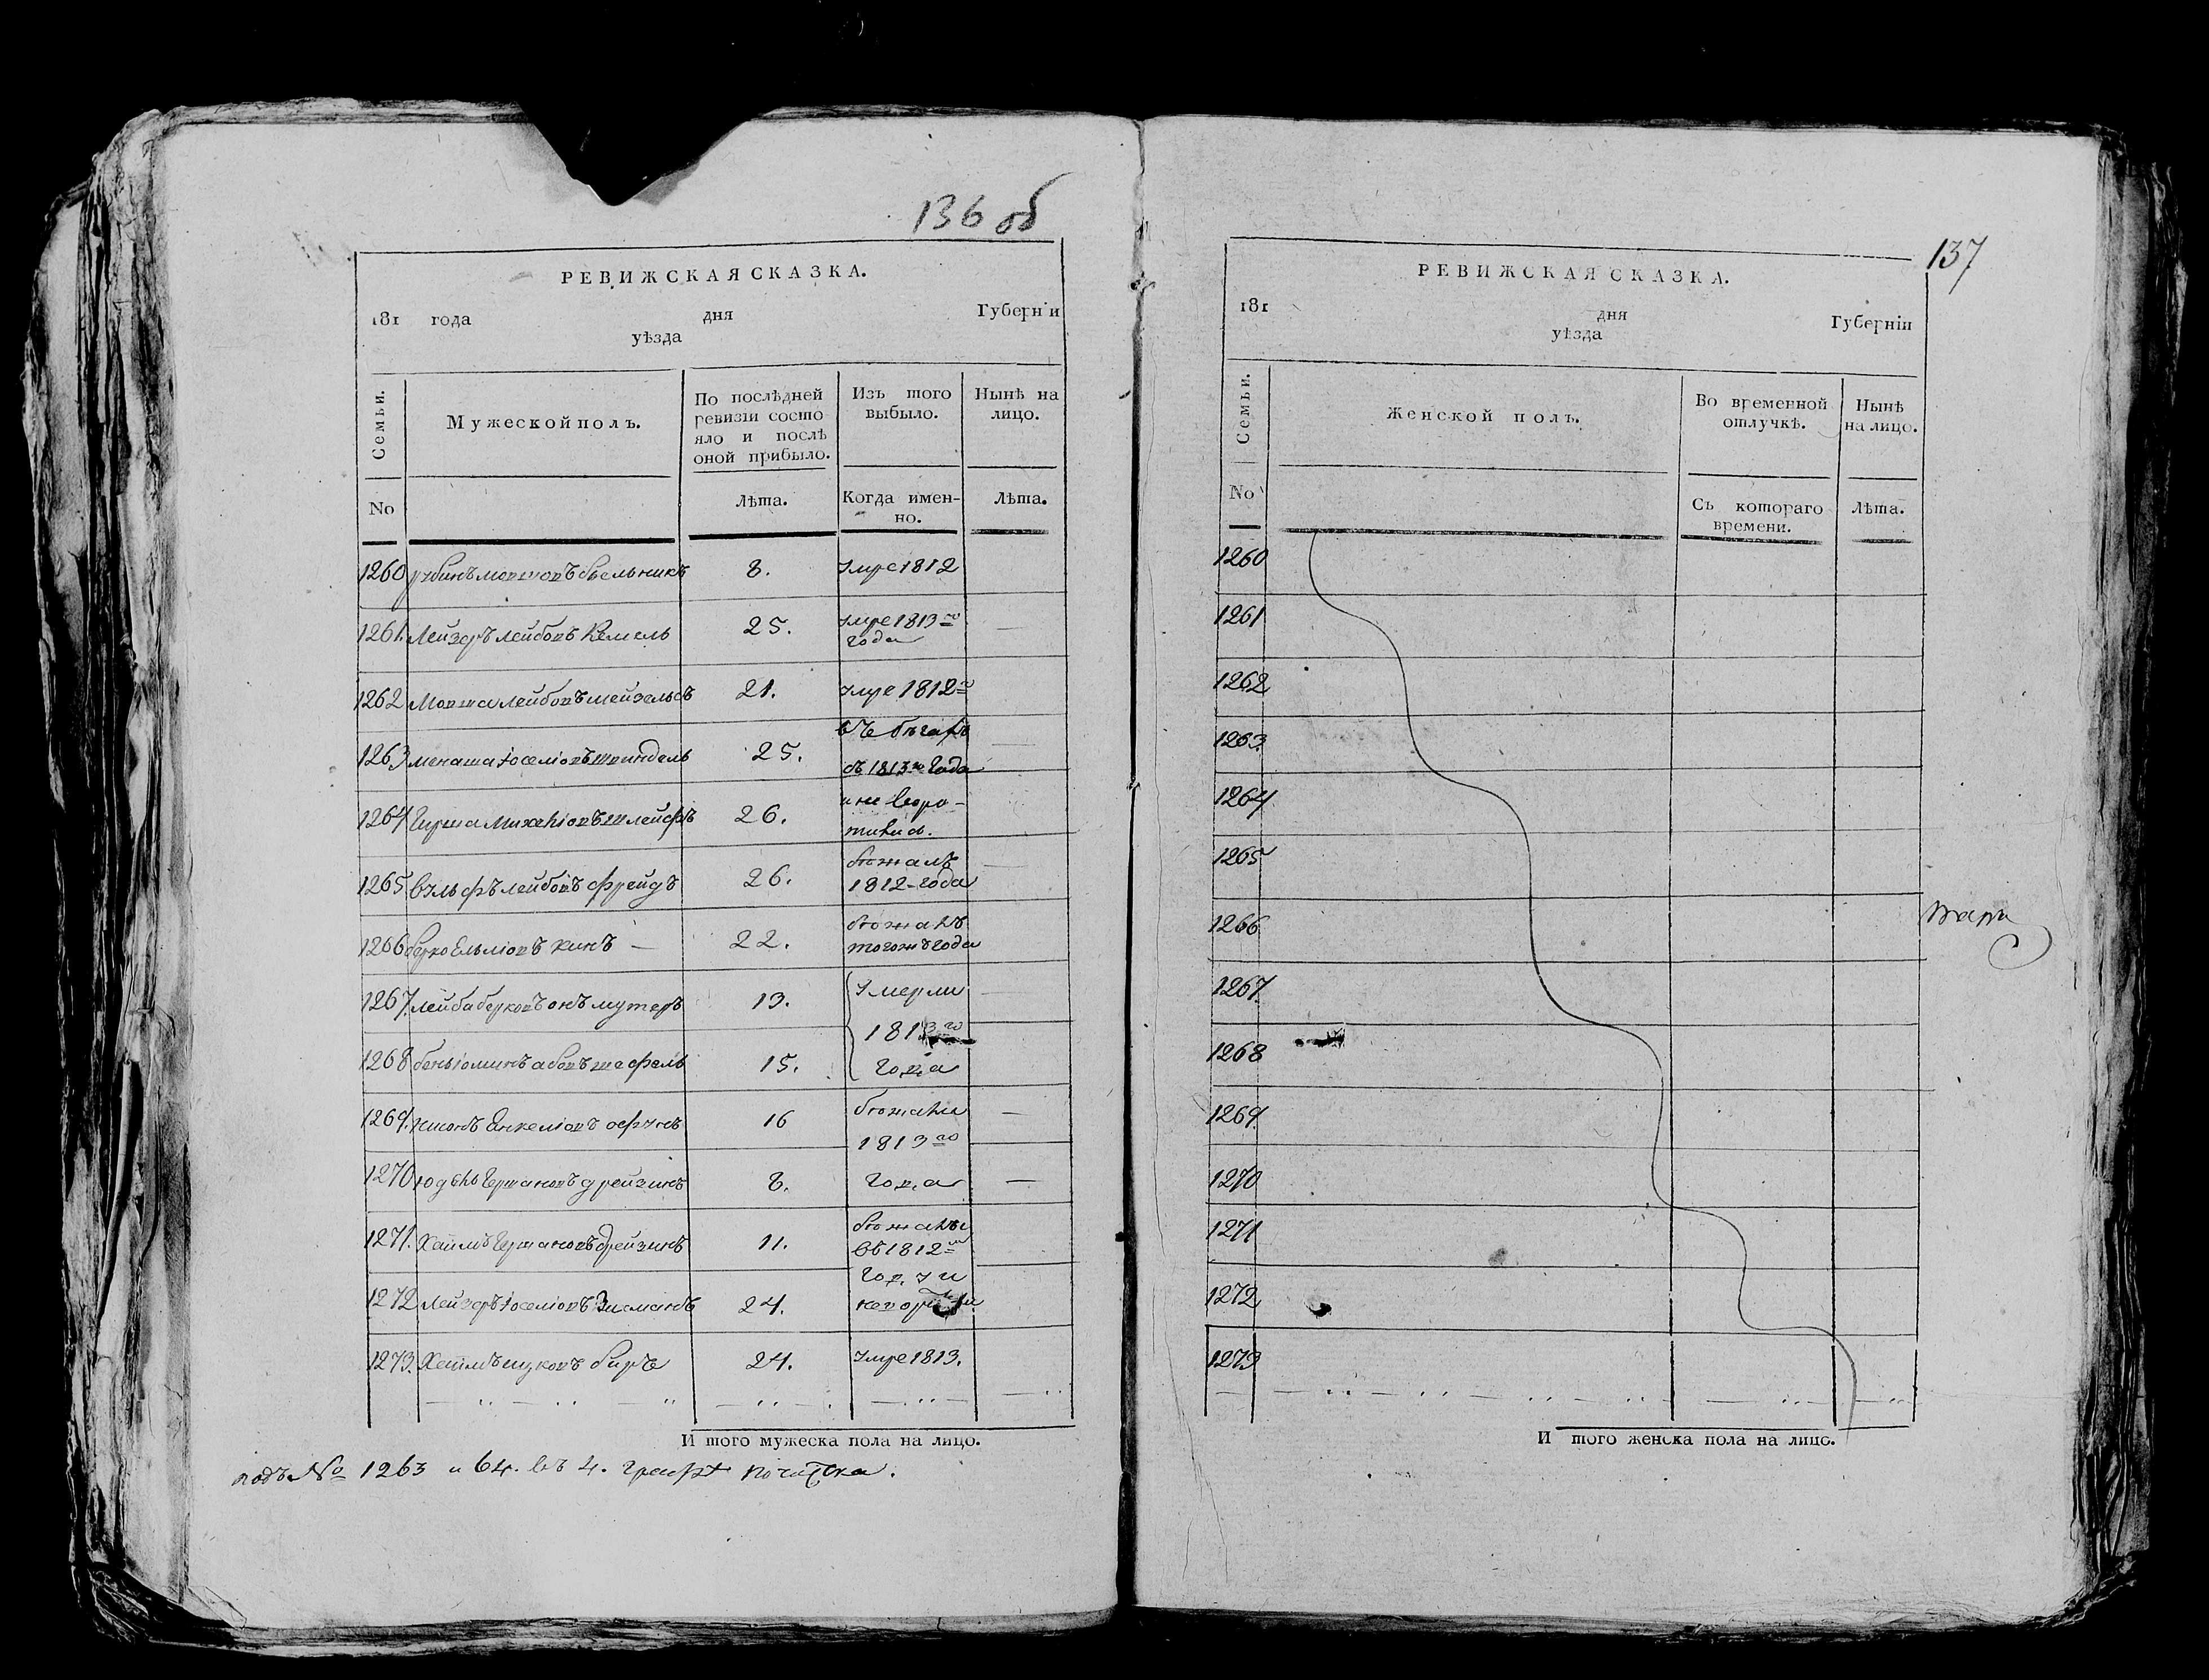 136 об
РЕВИЖСКАЯ СКАЗКА.
181 года дня Губернїи
уѣзда
Семьи.
Мужеской полъ.
По послѣдней
ревизїи состо
яло и послѣ
оной прибыло.
Изъ того
выбыло.
Нынѣ на
лицо.
No
Лѣта.
Когда имен-
но.
Лѣта.
1260 рубинъ мовшовъ бельникъ 8. умре 1812
1261. Лейзеръ лейбовъ Кемель 25. умре 1813го
года
1262 Мовша лейбовъ мейзельсъ 21. умре 1812го
1263 менаша іоселіовъ шпиндель 25. въ бѣгахъ
съ 1813го года
1264 Гирша Михеліовъ шлейфъ 26. и не воро-
тились.
1265 вульфъ лейбовъ фрейдъ 26. бѣжалъ
1812-года
1266 берко Ельліовъ кинъ — 22. бѣжалъ
тогожъ года
1267. лейба берковъ мутеръ 13. умерли
1813го
1268 беньюминъ абовъ шефель 15. года
1269. Янкеліовъ 16 бѣжали
1813го
1270 юдель Гершановъ дрейзинъ 8. года
1271. Хаимъ Гершановъ дрейзинъ 11. бѣжалъ
въ 1812м
1272 Лейзеръ іоселіовъ Зисманъ 24. году и
1273. Хаимъ ицковъ биръ 24. умре 1813.
И того мужеска пола на лицо.
подъ No 1263 и 64. въ 4. графѣ почистка.
137
РЕВИЖСКАЯ СКАЗКА.
181 дня Губернїи
уѣзда
Семьи.
Женской полъ.
Во временной
отлучкѣ.
Нынѣ
на лицо.
No
Съ котораго
времени.
Лѣта.
1260
1261
1262
1263.
1264
1265
1266
1267.
1268
1269.
1270
1271
1272
1273
И того женска пола на лицо.